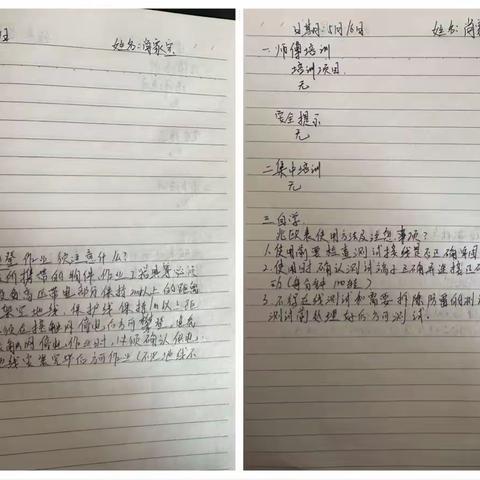 日
姓名:尚家宝
登作业须注意什么?
携带的物件,作业工具等必须
高压带电部分保持2m以上的距离
架空地线,保护线保持1m以上距
接触网停电后方可攀登,进行
触网停电作业时,必须确认停电
地线安装完毕后方可作业(不见地线不
日期:5月16日
姓名:尚家
一.师傅培训
培训项目
无
安全提示
无
二.集中培训
无
三.自学
兆欧表使用方法及注意事项?
1.使用前要检查测试接线是否正确牢固
2.使用时确认测试端子正确并连接正
动(每分钟120转)
3.不经在线测试和需要拆除防雷的测
测试前处理好后方可测试.